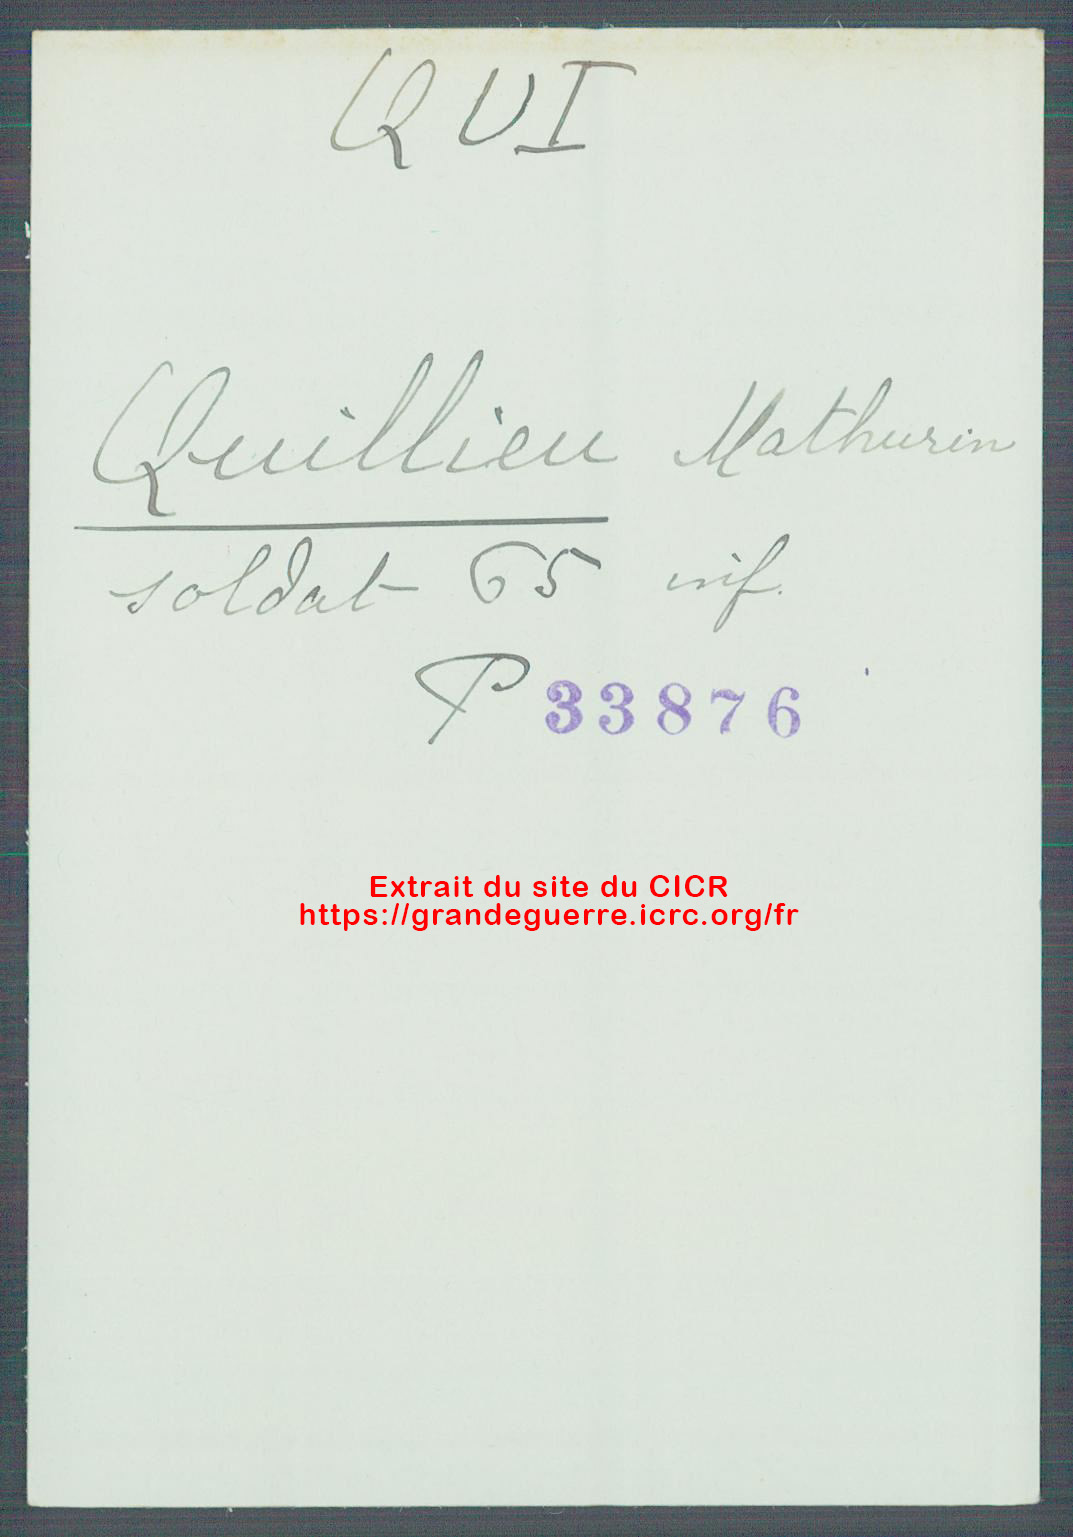 QUI
Quillieu Mathurin
soldat 65 inf.
P 33876
Extrait du site du CICR
https://grandeguerre.icrc.org/fr